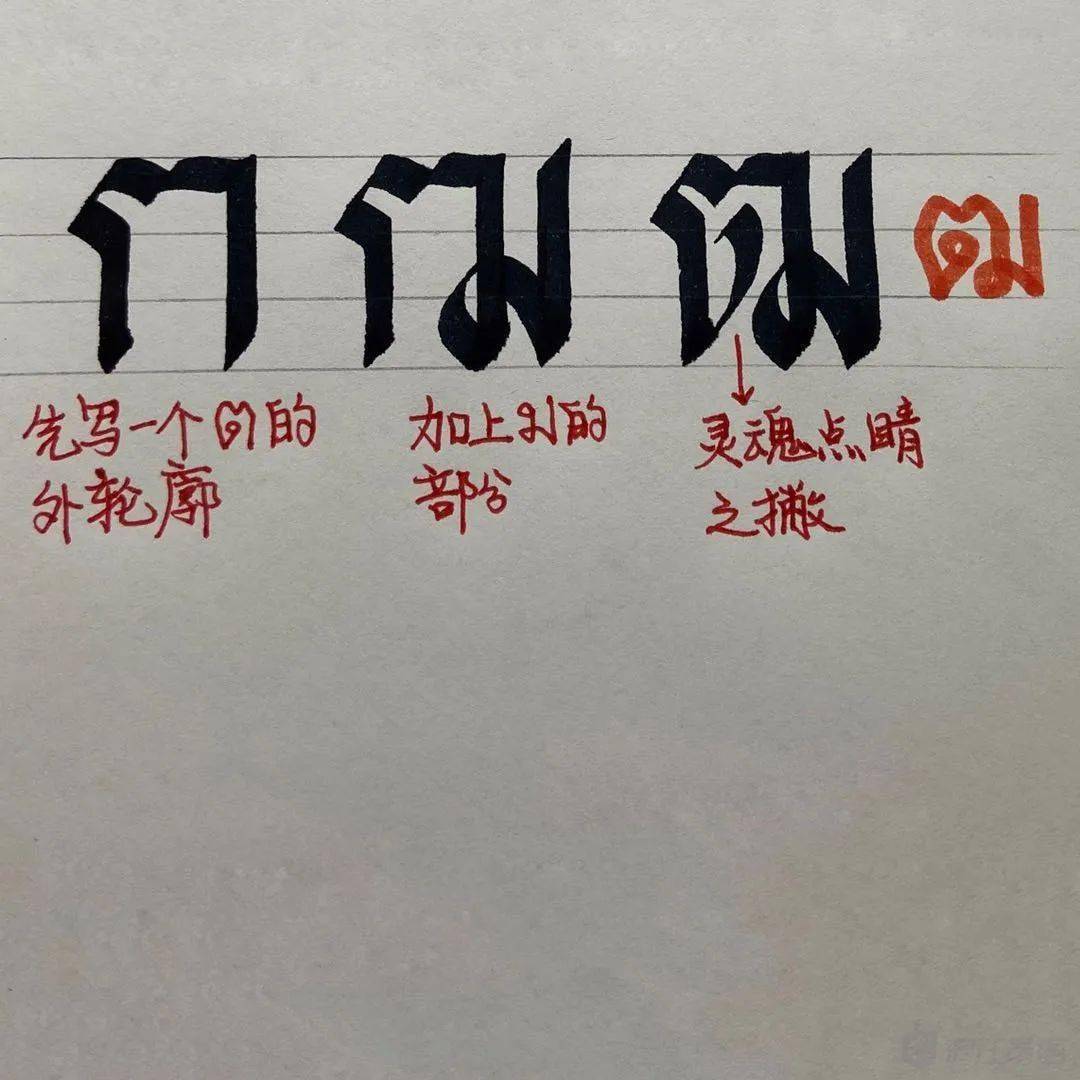 ก กม ฒ ฒ
先写一个ต的
外轮廓
加上ม的
部分
灵魂点睛
之撇